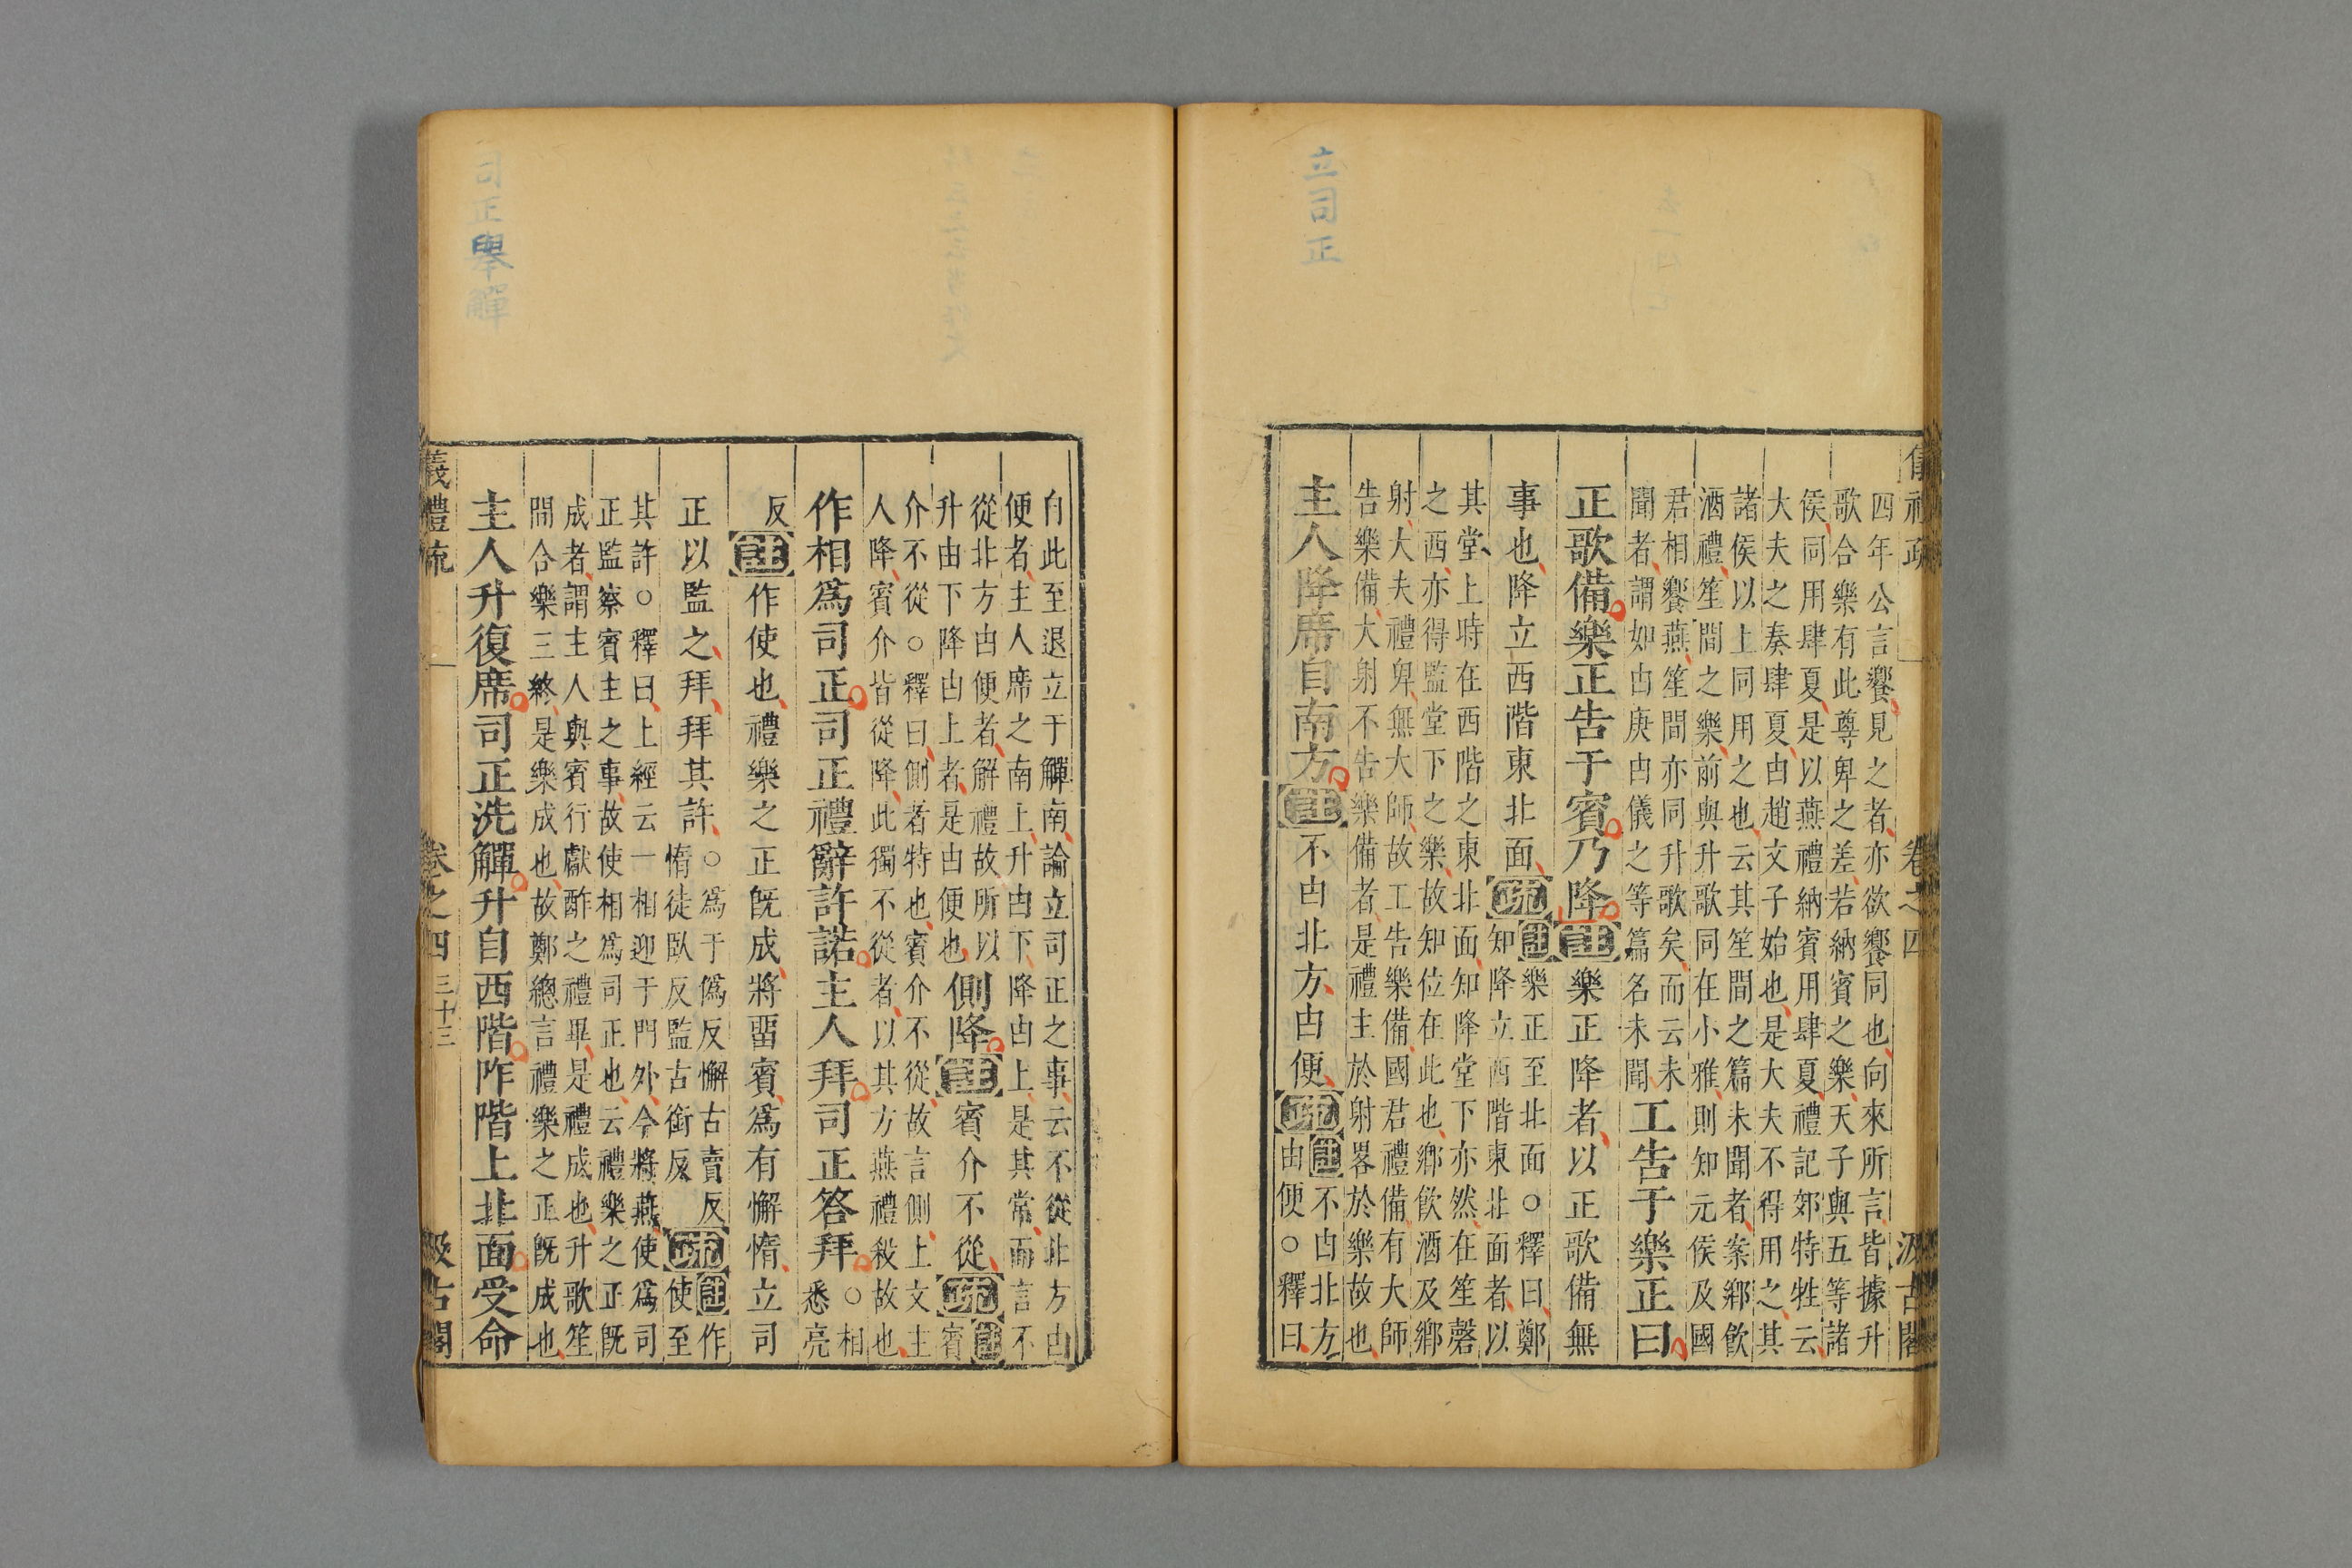 立司正
四年公言饗見之者亦欲饗同也向來所言皆據升
歌合樂有此尊卑之差若納賓之樂天子與五等諸
侯同用肆夏是以燕禮納賓用肆夏禮記郊特牲云
大夫之奏肆夏由趙文子始也是大夫不得用之其
諸侯以上同用之也云其笙間之篇未聞者案鄉飲
酒禮笙間之樂前與升歌同在小雅則知元侯及國
君相饗燕笙間亦同升歌矣而云未
聞者謂如由庚由儀之等篇名未聞
工告于樂正曰
正歌備樂正告于賓乃降
註樂正降者以正歌備無
事也降立西階東北面
疏註樂正至北面○釋曰鄭
知降立西階東北面者以
其堂上時在西階之東北面知降堂下亦然在笙磬
之西亦得監堂下之樂故知位在此也鄉飲酒及鄉
射大夫禮卑無大師故工告樂備國君禮備有大師
告樂備大射不告樂備者是禮主於射畧於樂故也
主人降席自南方
註不由北方由便
疏註不由北方
由便○釋曰
儀禮疏
卷之四
汲古閣
司正舉觶
自此至退立于觶南論立司正之事云不從北方由
便者主人席之南上升由下降由上是其常而言不
從北方由便者解禮故所以
升由下降由上者是由便也
側降
註賓介不從
疏註賓
介不從○釋曰側者特也賓介不從故言側上文主
人降賓介皆從降此獨不從者以其方燕禮殺故也
作相爲司正司正禮辭許諾主人拜司正答拜
○相
悉亮
反
註作使也禮樂之正旣成將畱賓爲有懈惰立司
正以監之拜拜其許
○爲于僞反懈古賣反
惰徒臥反監古銜反
疏註作
使至
其許○釋曰上經云一相迎于門外今將燕使爲司
正監察賓主之事故使相爲司正也云禮樂之正旣
成者謂主人與賓行獻酢之禮畢是禮成也升歌笙
間合樂三終是樂成也故鄭總言禮樂之正旣成也
主人升復席司正洗觶升自西階阼階上北面受命
義禮疏
卷之四
三十三
汲古閣